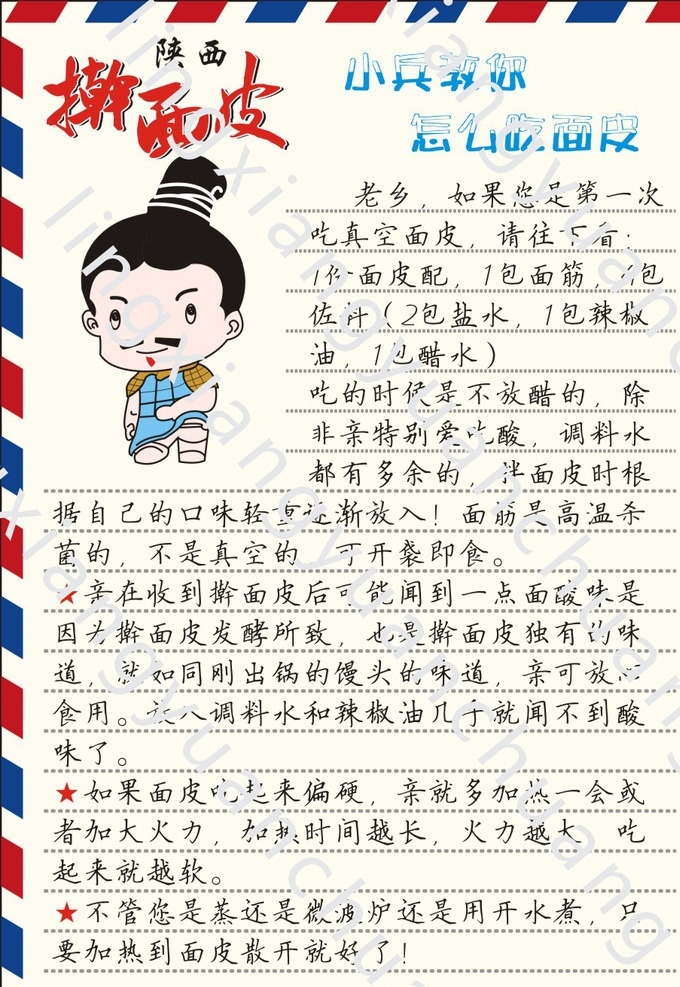 陕西
擀面皮
小兵教你
怎么吃面皮
老乡，如果您是第一次
吃真空面皮，请往下看：
1份面皮配，1包面筋，4包
佐料（2包盐水，1包辣椒
油，1包醋水）
吃的时候是不放醋的，除
非亲特别爱吃酸，调料水
都有多余的，拌面皮时根
据自己的口味轻重逐渐放入！面筋是高温杀
菌的，不是真空的 可开袋即食。
★亲在收到擀面皮后可能闻到一点面酸味是
因为擀面皮发酵所致，也是擀面皮独有的味
道，就如同刚出锅的馒头的味道，亲可放心
食用。放入调料水和辣椒油几乎就闻不到酸
味了。
★如果面皮吃起来偏硬，亲就多加热一会或
者加大火力，加热时间越长，火力越大 吃
起来就越软。
★不管您是蒸还是微波炉还是用开水煮，只
要加热到面皮散开就好了！
lingxiangyuanchuang